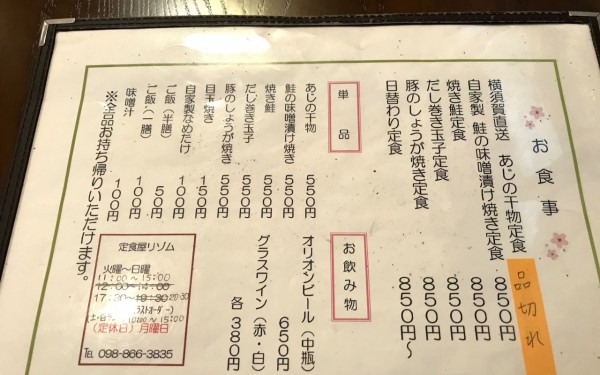 お食事
横須賀直送 あじの干物定食 850円
品切れ
自家製 鮭の味噌漬け焼き定食 850円
焼き鮭定食 850円
だし巻き玉子定食 850円
豚のしょうが焼き定食 850円
日替わり定食 850円〜
単品
あじの干物 550円
鮭の味噌漬け焼き 550円
焼き鮭 550円
だし巻き玉子 550円
豚のしょうが焼き 550円
目玉焼き 150円
自家製なめたけ 100円
ご飯(半膳) 50円
ご飯(一膳) 100円
味噌汁 100円
※全品お持ち帰りいただけます。
お飲み物
オリオンビール(中瓶) 650円
グラスワイン(赤・白) 各 380円
定食屋リゾム
火曜~日曜
11:00~15:00
12:00~14:00
17:30~19:30 20:30
(定休日)月曜日
TEL 098-866-3835